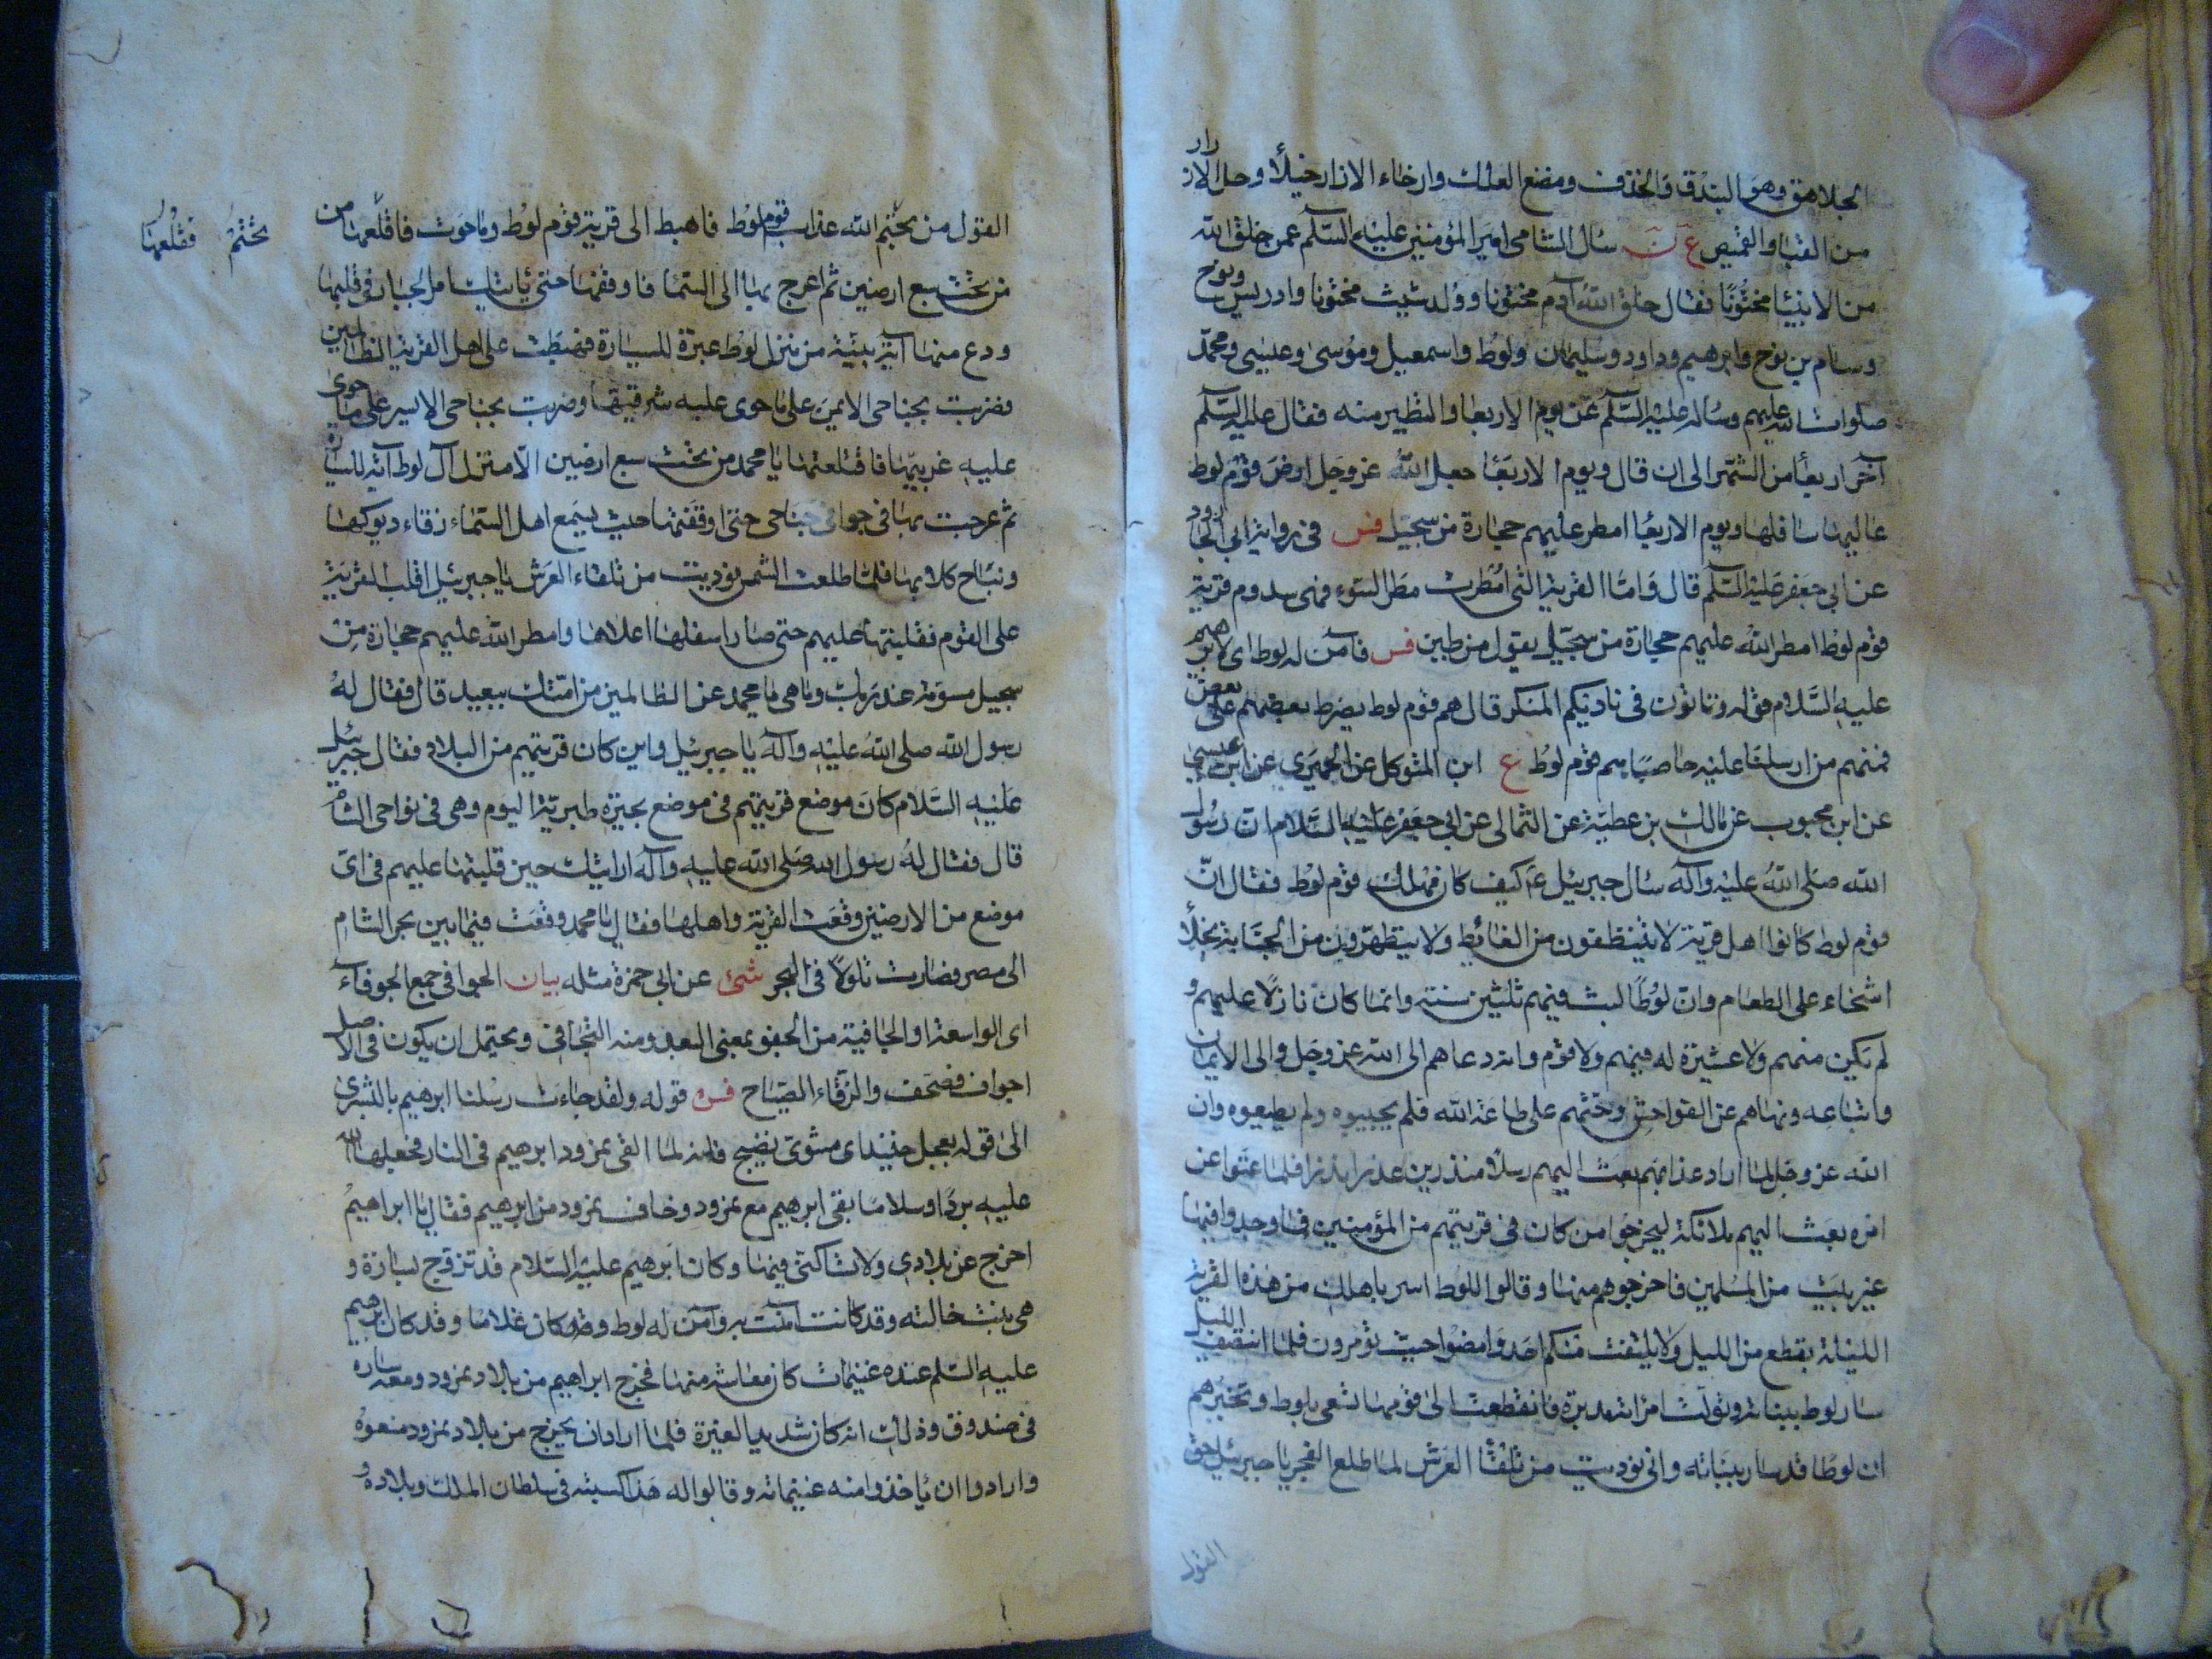 الجلاهق وهو البندق والخذف ومضغ العلك وارخاء الازار خيلأ وحل الازرار
من القبا والقميص ع ن سأل الشامى امير المؤمنين عليه السّلم عمن خلق الله
من الانبيا مختونا فقال خلق الله آدم مختونا وولد شيث مختونا وادريس ونوح
وسام بن نوح وابرهيم وداود وسليمان ولوط واسمعيل وموسى وعيسى ومحمّد
صلوات الله عليهم وساله عليه السّلم عن يوم الاربعا والتطير منه فقال عليه السّلم
آخر اربعأ من الشهر الى ان قال ويوم الاربعا جعل الله عز وجل ارض قوم لوط
عاليها سافلها ويوم الاربعا امطر عليهم حجارة من سجيل فس فى رواية ابى الجارود
عن ابى جعفر عليه السّلم قال واما القرية التى امطرت مطر السّوء فهى سدوم قرية
قوم لوط امطر الله عليهم حجارة من سجّيل يقول من طين فس فآمن له لوط اى لابرهيم
عليه السّلام قوله وتاتون فى ناديكم المنكر قال هم قوم لوط يضرط بعضهم على بعض
فمنهم من ارسلنا عليه حاصبا هم قوم لوط ع ابن المتوكل عن الحميرى عن ابن عيسى
عن ابن محبوب عن مالك بن عطيّة عن الثمالى عن ابى جعفر عليه السّلام ان رسول
الله صلى الله عليه وآله سأل جبرئيل ع كيف كان مهلك قوم لوط فقال انّ
قوم لوط كانوا اهل قرية لا يتنظفون من الغائط ولا يتطهرون من الجنابة بخلأ
اشحاء على الطعام وان لوطًا لبث فيهم ثلثين سنة وانما كان نازلًا عليهم و
لم يكن منهم ولا عشيرة له فيهم ولا قوم وانه دعاهم الى الله عز وجل والى الايمان
واتباعه ونهاهم عن الفواحش وحثهم على طاعة الله فلم يجيبوه ولم يطيعوه وان
الله عز وجل لما اراد عذابهم بعث اليهم رسلًا منذرين عذرا نذرا فلما عتوا عن
امره بعث اليهم ملائكة ليخرجوا من كان فى قريتهم من المؤمنين فما وجدوا فيها
غير بيت من المسلمين فاخرجوهم منها وقالوا للوط اسر باهلك من هذه القرية
الليلة بقطع من الليل ولا يلتفت منكم احد وامضوا حيث تؤمرون فلما انتصف الليل
سار لوط ببناته وتولت امراته مدبرة فانقطعت الى قومها تسعى بلوط وتخبرهم
ان لوطا قد سار ببناته وانى نوديت من تلقأ العرش لما طلع الفجر يا جبرئيل حق
القول
القول من بحتم الله عذاب قوم لوط فاهبط الى قرية قوم لوط وما حوت فاقلعها من
من تحت سبع ارضين ثم اعرج بها الى السّمأ فاوقفها حتى ياتيك امر الجبار فى قلبها
ودع منها آية بيّنة من منزل لوط عبرة للسيارة فهبطت على اهل القرية الظالمين
فضربت بجناحى الايمن على ما حوى عليه شرقيها وضربت بجناحى الايسر على ما حوى
عليه غربيّها فاقتلعتها يا محمد من تحت سبع ارضين الا منزل آل لوط آية للسيارة
ثم عرجت بها فى جوافى جناحى حتى اوقفتها حيث يسمع اهل السّماء زقاء ديوكها
ونباح كلابها فلما طلعت الشمس نوديت من تلقاء العرش يا جبرئيل اقلب القرية
على القوم فقلبتها عليهم حتى صار اسفلها اعلاها وامطر الله عليهم حجارة من
سجيل مسومة عند ربك وما هى يا محمد عن الظالمين من امتك ببعيد قال فقال له
رسول الله صلى الله عليه وآله يا جبرئيل واين كان قريتهم من البلاد فقال جبرئيل
عليه السّلام كان موضع قريتهم فى موضع بحيرة طبريّة اليوم وهى فى نواحى الشام
قال فقال له رسول الله صلى الله عليه وآله ارايتك حين قلبتها عليهم فى اىّ
موضع من الارضين وقعت القرية واهلها فقال يا محمد وقعت فيما بين بحر الشام
الى مصر فصارت تلولًا فى البحر شى عن ابى حمزة مثله بيان الجوافى جمع الجوفاء
اى الواسعة او الجافية من الجفو بمعنى البعد ومنه التجافى ويحتمل ان يكون فى الاصل
اجواف فصحف والزقاء الصّياح فس قوله ولقد جاءت رسلنا ابرهيم بالبشرى
الى قوله بعجل حنيذ اى مشوىّ نضيج فانه لما القى نمرود ابرهيم فى النار فجعلها الله
عليه بردًا وسلامًا بقى ابرهيم مع نمرود وخاف نمرود من ابرهيم فقال يا ابراهيم
اخرج عن بلادى ولا تساكنى فيها وكان ابرهيم عليه السّلام قد تزوّج بسارة و
هى بنت خالته وقد كانت آمنت به وآمن له لوط وقد كان غلامًا وقد كان ابرهيم
عليه السّلم عنده غنيمات كان معاشه منها فخرج ابراهيم من بلاد نمرود ومعه ساره
فى صندوق وذلك انه كان شديد الغيرة فلما اراد ان يخرج من بلاد نمرود منعوه
وارادوا ان ياخذوا منه غنيماته وقالوا له هذا كسبته فى سلطان الملك وبلاده و